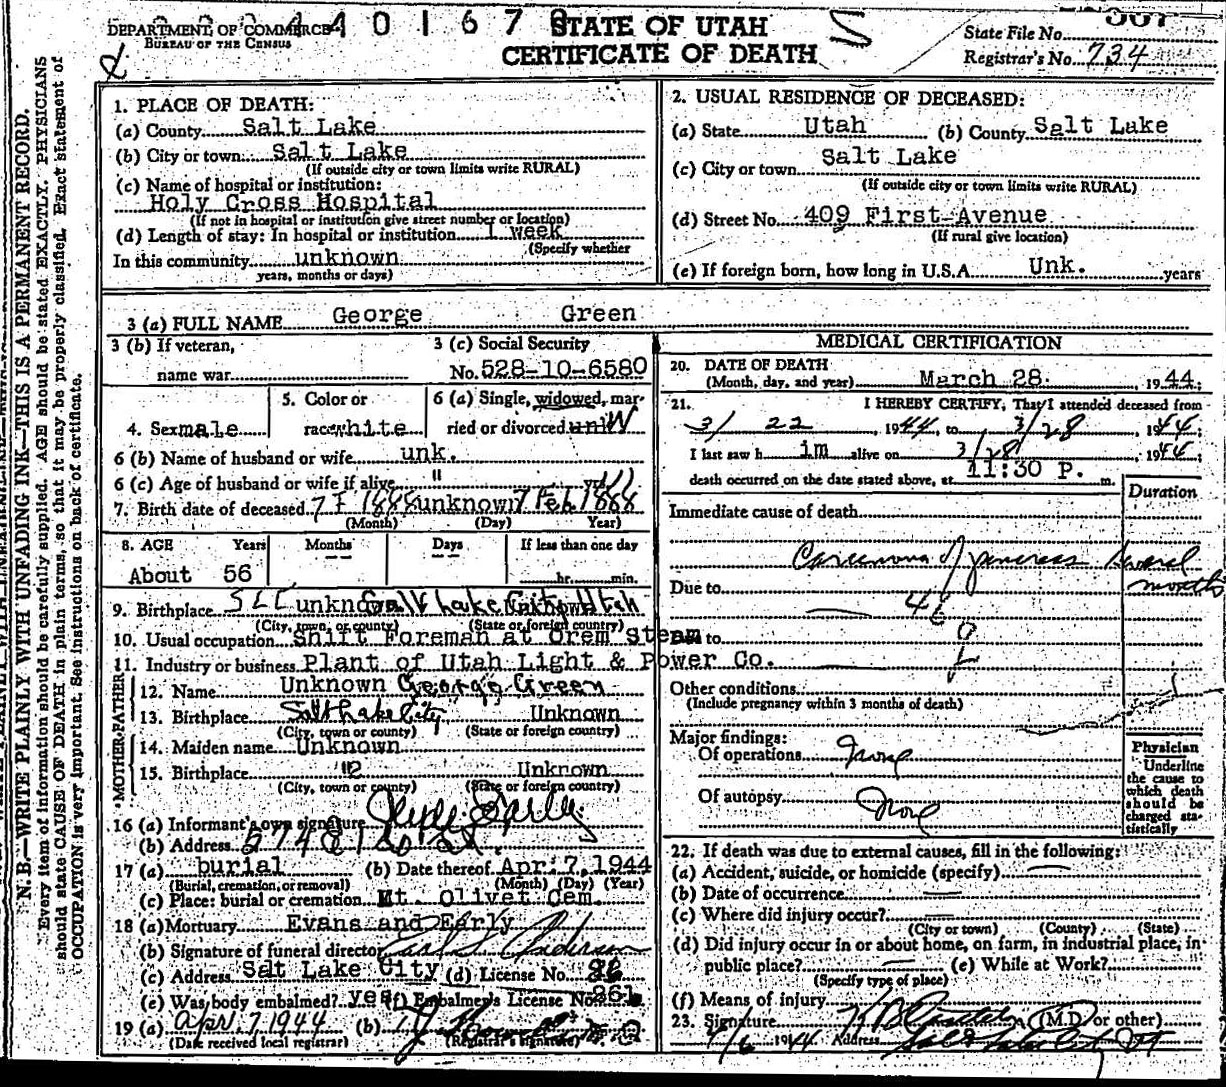 DEPARTMENT OF COMMERCE
BUREAU OF THE CENSUS
STATE OF UTAH
CERTIFICATE OF DEATH
State File No.
Registrar's No. 734
N. B.—WRITE PLAINLY WITH UNFADING INK—THIS IS A PERMANENT RECORD.
Every item of information should be carefully supplied. AGE should be stated EXACTLY. PHYSICIANS
should state CAUSE OF DEATH in plain terms, so that it may be properly classified. Exact statement of
OCCUPATION is very important. See instructions on back of certificate.
1. PLACE OF DEATH:
(a) County Salt Lake
(b) City or town Salt Lake
(If outside city or town limits write RURAL)
(c) Name of hospital or institution:
Holy Cross Hospital
(If not in hospital or institution give street number or location)
(d) Length of stay: In hospital or institution 1 week
(Specify whether
In this community unknown
years, months or days)
2. USUAL RESIDENCE OF DECEASED:
(a) State Utah (b) County Salt Lake
(c) City or town Salt Lake
(If outside city or town limits write RURAL)
(d) Street No. 409 First Avenue
(If rural give location)
(e) If foreign born, how long in U.S.A. Unk. years
3 (a) FULL NAME George Green
3 (b) If veteran, name war
3 (c) Social Security
No. 528-10-6580
4. Sex male
5. Color or
race white
6 (a) Single, widowed, mar-
ried or divorced unk W
6 (b) Name of husband or wife unk.
6 (c) Age of husband or wife if alive " yrs
7. Birth date of deceased 7 F 1888 unknown 7 Feb 1888
(Month) (Day) Year)
8. AGE Years Months Days If less than one day
About 56 -- -- hr. min.
9. Birthplace SLC unknown Salt Lake City Utah
(City, town, or county) (State or foreign country)
10. Usual occupation Shift Foreman at Orem Steam
11. Industry or business Plant of Utah Light & Power Co.
FATHER
12. Name Unknown George Green
13. Birthplace Salt Lake City Unknown
(City, town or county) (State or foreign country)
MOTHER
14. Maiden name Unknown
15. Birthplace Unknown
(City, town or county) (State or foreign country)
16 (a) Informant's own signature
(b) Address
17 (a) burial (b) Date thereof Apr. 7, 1944
(Burial, cremation, or removal) (Month) (Day) (Year)
(c) Place: burial or cremation Mt. Olivet Cem.
18 (a) Mortuary Evans and Early
(b) Signature of funeral director Earl S. Anderson
(c) Address Sat Lake City (d) License No. 26
(e) Was body embalmed? yes (f) Embalmer's License No. 261
19 (a) Apr. 7, 1944 (b)
(Date received local registrar) (Registrar's signature)
MEDICAL CERTIFICATION
20. DATE OF DEATH
(Month, day, and year) March 28 , 1944;
21. I HEREBY CERTIFY, That I attended deceased from
3/ 22 , 1944, to 3/28 , 1944;
I last saw h im alive on 3/28 , 1944
death occurred on the date stated above, at 11:30 P. m.
Duration
Immediate cause of death
Carcinoma of pancreas Several
months
Due to
46
Due to
Other conditions
(Include pregnancy within 3 months of death)
Major findings:
Of operations None
Of autopsy None
Physician
Underline
the cause to
which death
should be
charged sta-
tistically
22. If death was due to external causes, fill in the following:
(a) Accident, suicide, or homicide (specify)
(b) Date of occurrence
(c) Where did injury occur?
(City or town) (County) (State)
(d) Did injury occur in or about home, on farm, in industrial place, in
public place? (e) While at Work?
(Specify type of place)
(f) Means of injury
23. Signature (M.D. or other)
4/6 1944 Address Salt Lake City Ut